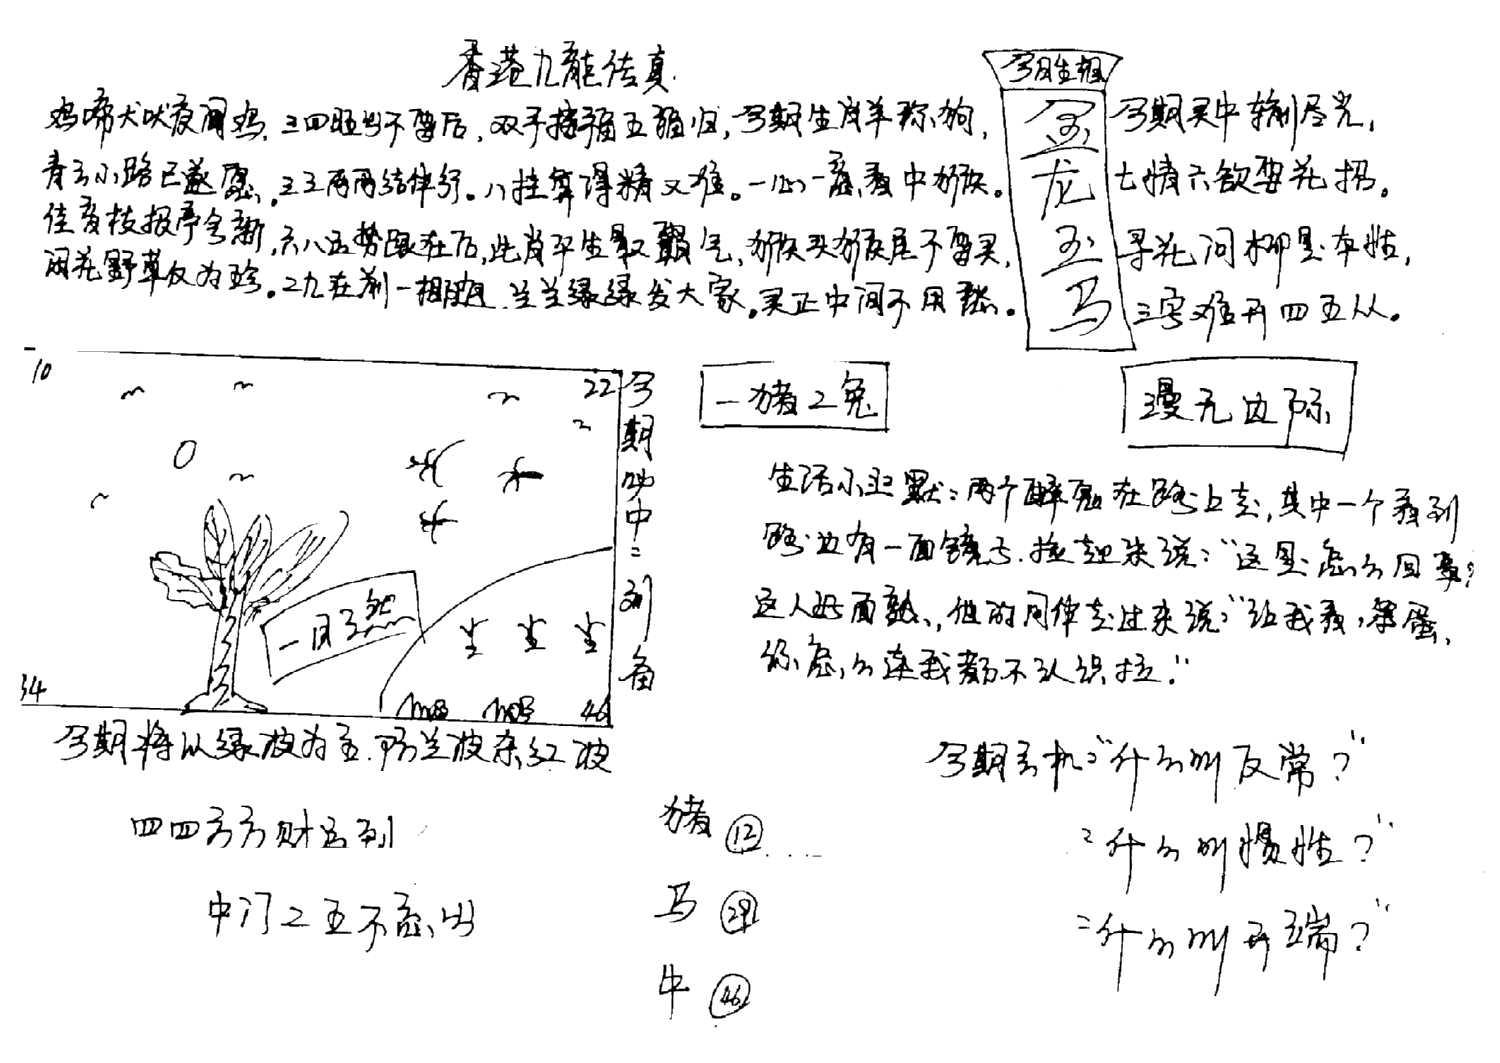 香港九龍传真
今期生相
金龙玉马
鸡啼犬吠夜闻鸡,三四旺出不要后,双手接福五福归,今期生肖羊称狗,
今期买中输尽光,
青云小路已遂愿,三三两两结伴行。八挂算得精又准。一心一意看中猴。
七情六欲要花招。
佳音枝报亭今新,六八五势跟在后,此肖平生最,猴头猴尾不要买,
寻花问柳是本性,
闲花野草仅为珍。二九在前一相跟,兰兰绿绿发大家。买正中间不用愁。
三字难开四五从。
10
22
34
46
一目了然
今期必中二到备
一猪2兔
漫无边际
生活小幽默:两个醉鬼在路上走,其中一个看到
路边有一面镜子.捡起来说:"这是怎么回事?
这人好面熟,他的同伴走过来说:"让我看,笨蛋,
你怎么连我都不认识拉."
今期将以绿波为主.防兰波杂红波
四四方方财运到
中门2五不意出
猪 ⑫
马 ㉙
牛 ㊻
今期玄机:"什么叫反常?"
"什么叫惯性?"
"什么叫开端?"